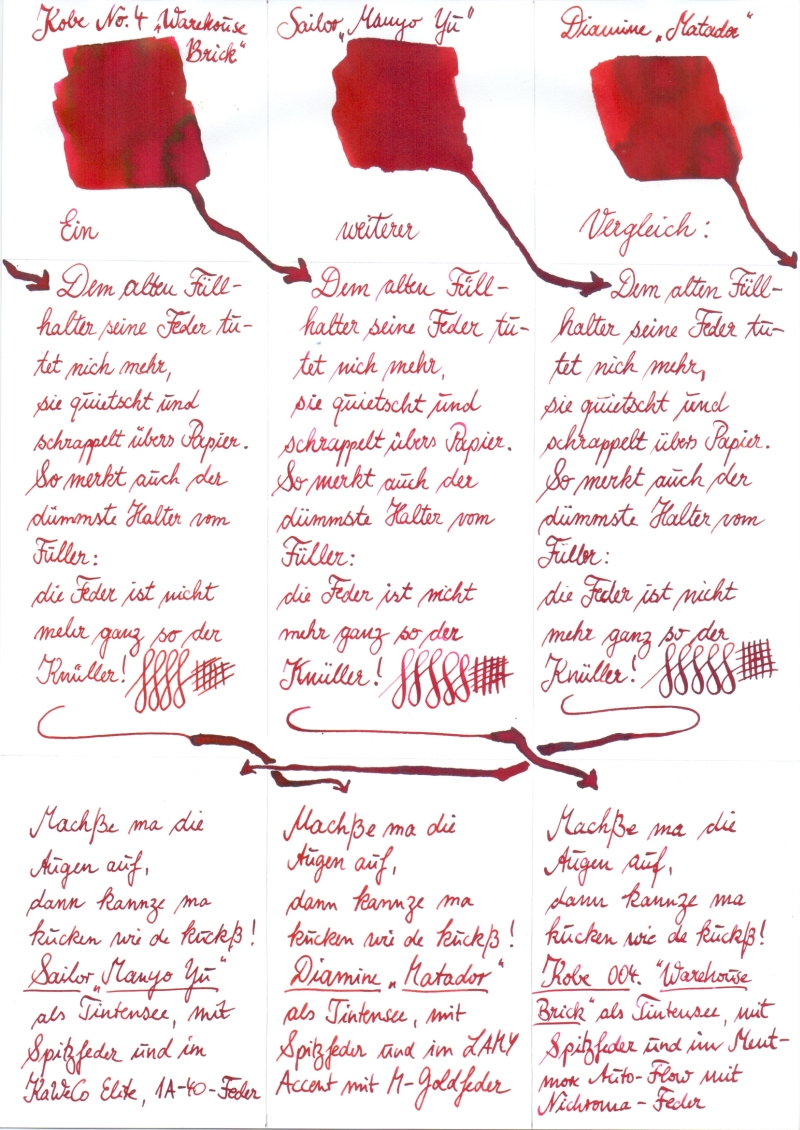 Kobe No. 4 „Warehouse
Brick"
Sailor „Manyo Yū"
Diamine „Matador"
Ein weiterer Vergleich:
Dem alten Füll-
halter seine Feder tu-
tet nich mehr,
sie quietscht und
schrappelt übers Papier.
So merkt auch der
dümmste Halter vom
Füller:
die Feder ist nicht
mehr ganz so der
Knüller!
Dem alten Füll-
halter seine Feder tu-
tet nich mehr,
sie quietscht und
schrappelt übers Papier.
So merkt auch der
dümmste Halter vom
Füller:
die Feder ist nicht
mehr ganz so der
Knüller!
Dem alten Füll-
halter seine Feder tu-
tet nich mehr,
sie quietscht und
schrappelt übers Papier.
So merkt auch der
dümmste Halter vom
Füller:
die Feder ist nicht
mehr ganz so der
Knüller!
Machße ma die
Augen auf,
dann kannze ma
kucken wie de kuckß!
Sailor „Manyo Yū"
als Tintensee, mit
Spitzfeder und im
KaWeCo Elite, 1A-40-Feder
Machße ma die
Augen auf,
dann kannze ma
kucken wie de kuckß!
Diamine „Matador"
als Tintensee, mit
Spitzfeder und im LAMY
Accent mit M-Goldfeder
Machße ma die
Augen auf,
dann kannze ma
kucken wie de kuckß!
Kobe 004. "Warehouse
Brick" als Tintensee, mit
Spitzfeder und im Ment-
mor Auto-Flow mit
Nichroma-Feder